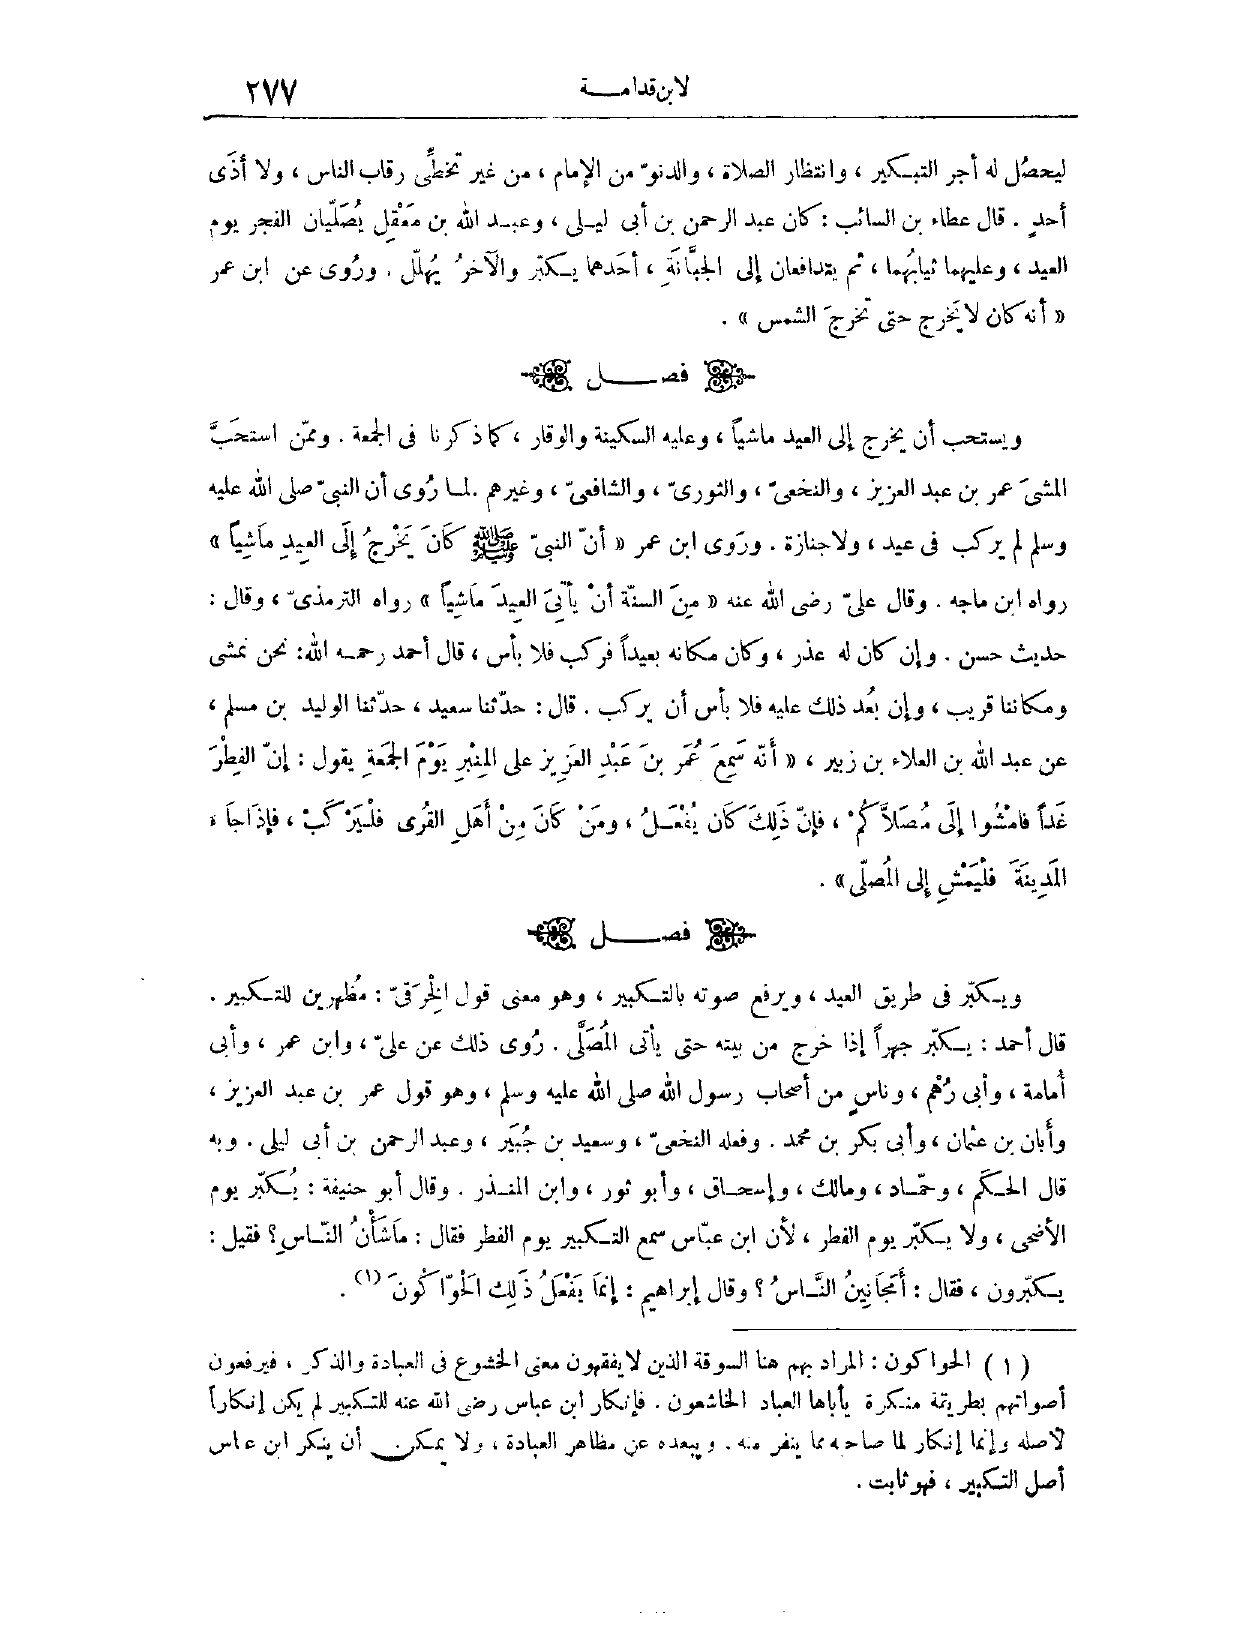 لابن قدامة ٢٧٧
ليحصُل له أجر التبكير ، وانتظار الصلاة ، والدنوّ من الإمام ، من غير تخطِّى رقاب الناس ، ولا أذَى
أحدٍ . قال عطاء بن السائب : كان عبد الرحمن بن أبى ليلى ، وعبد الله بن مَعْقِل يُصَلِّيان الفجر يوم
العيد ، وعليهما ثيابُهما ، ثم يتدافعان إلى الجبَّانَةِ ، أحَدهما يكبّر والآخرُ يُهلّل . ورُوى عن ابن عمر
« أنه كان لا يَخرج حتى تخرجَ الشمس » .
فصل
ويستحب أن يخرج إلى العيد ماشياً ، وعليه السكينة والوقار ، كما ذكرنا فى الجمعة . وممّن استحَبَّ
المشىَ عمر بن عبد العزيز ، والنخعىّ ، والثورىّ ، والشافعىّ ، وغيرهم . لما رُوى أن النبىّ صلى الله عليه
وسلم لم يركب فى عيد ، ولا جنازة . ورَوى ابن عمر « أنّ النبىّ ﷺ كَانَ يَخْرجُ إِلَى العِيدِ مَاشِياً »
رواه ابن ماجه . وقال علىّ رضى الله عنه « مِنَ السنّة أنْ يأتِىَ العِيدَ مَاشِياً » رواه الترمذىّ ، وقال :
حديث حسن . وإن كان له عذر ، وكان مكانه بعيداً فركب فلا بأس ، قال أحمد رحمه الله : نحن نمشى
ومكاننا قريب ، وإن بعُد ذلك عليه فلا بأس أن يركب . قال : حدّثنا سعيد ، حدّثنا الوليد بن مسلم ،
عن عبد الله بن العلاء بن زبير ، « أنّه سَمِعَ عُمَر بنَ عَبْدِ العَزِيز على المِنْبرِ يَوْمَ الجمَعةِ يقول : إنّ الفِطْرَ
غَداً فامْشُوا إلَى مُصَلاَّكُمْ ، فإنّ ذَلِكَ كان يُفْعَلُ ، ومَنْ كانَ مِنْ أَهلِ القُرَى فلْيَرْكبْ ، فإذَا جَاءَ
المَدِينَةَ فلْيَمْشِ إلى المُصلَّى » .
فصل
ويكبّر فى طريق العيد ، ويرفع صوته بالتكبير ، وهو معنى قول الخِرَقىّ : مُظهرين للتكبير .
قال أحمد : يكبّر جهراً إذا خرج من بيته حتى يأتى المُصَلَّى . رُوى ذلك عن علىّ ، وابن عمر ، وأبى
أُمامة ، وأبى رُهْم ، وناسٍ من أصحاب رسول الله صلى الله عليه وسلم ، وهو قول عمر بن عبد العزيز ،
وأبان بن عثمان ، وأبى بكر بن محمد . وفعله النخعىّ ، وسعيد بن جُبَير ، وعبد الرحمن بن أبى ليلى . وبه
قال الحكَم ، وحمّاد ، ومالك ، وإسحاق ، وأبو ثور ، وابن المنذر . وقال أبو حنيفة : يُكبّر يوم
الأضحى ، ولا يكبّر يوم الفطر ، لأن ابن عبّاس سمع التكبير يوم الفطر فقال : مَا شَأْنُ النّاسِ؟ فقيل :
يكبّرون ، فقال : أَمَجَانِينُ النَّاسُ ؟ وقال إبراهيم : إنمَا يَفْعَلُ ذَلِك الحَوّاكُونَ (١) .
( ١ ) الحواكون : المراد بهم هنا السوقة الذين لا يفقهون معنى الخشوع فى العبادة والذكر ، فيرفعون
أصواتهم بطريقة منكرة يأباها العباد الخاشعون . فإنكار ابن عباس رضى الله عنه للتكبير لم يكن إنكاراً
لأصله وإنما إنكار لما صاحبه مما ينفر منه . ويبعده عن مظاهر العبادة ، ولا يمكن أن ينكر ابن عباس
أصل التكبير ، فهو ثابت .